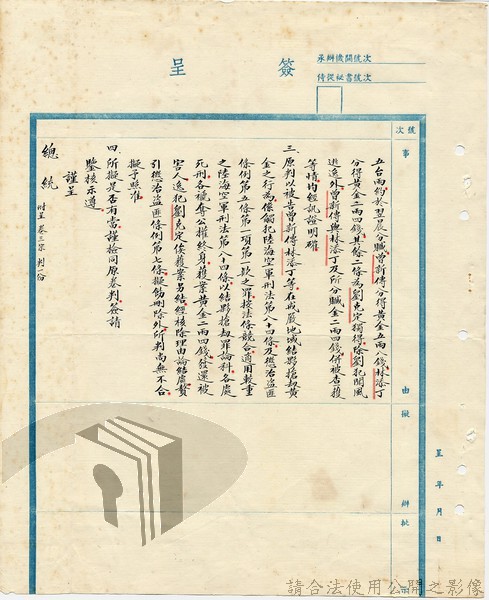 簽呈
承辦機關號次
侍從秘書號次
號次
事由
擬辦
批示
呈年月日
五台兩給於翌晨分贓曾新傳分得黃金五兩八錢林添丁
分得黃金二兩四錢其餘二條為劉克定獨得除劉犯聞風
逃逸外曾新傳與林添丁及所分贓金二兩四錢併被告獲
等情均經訊證明確
三、原判以被告曾新傳林添丁等在戒嚴地域結夥搶刼黃
金之行為係觸犯陸海空軍刑法第八十四條及懲治盜匪
條例第五條第一項第一款之罪按法條競合適用較重
之陸海空軍刑法第八十四條以結夥搶刼罪論科各處
死刑各褫奪公權終身獲案黃金二兩四錢發還被
害人逸犯劉克定俟獲案另結經核除理由論結屬贅
引懲治盜匪條例第七條擬飭刪除外所判尚無不合
擬予照准
四、所擬是否有當謹檢同原卷判簽請
鑒核示遵
謹呈
總統
附呈卷三宗判一份
請合法使用公開之影像